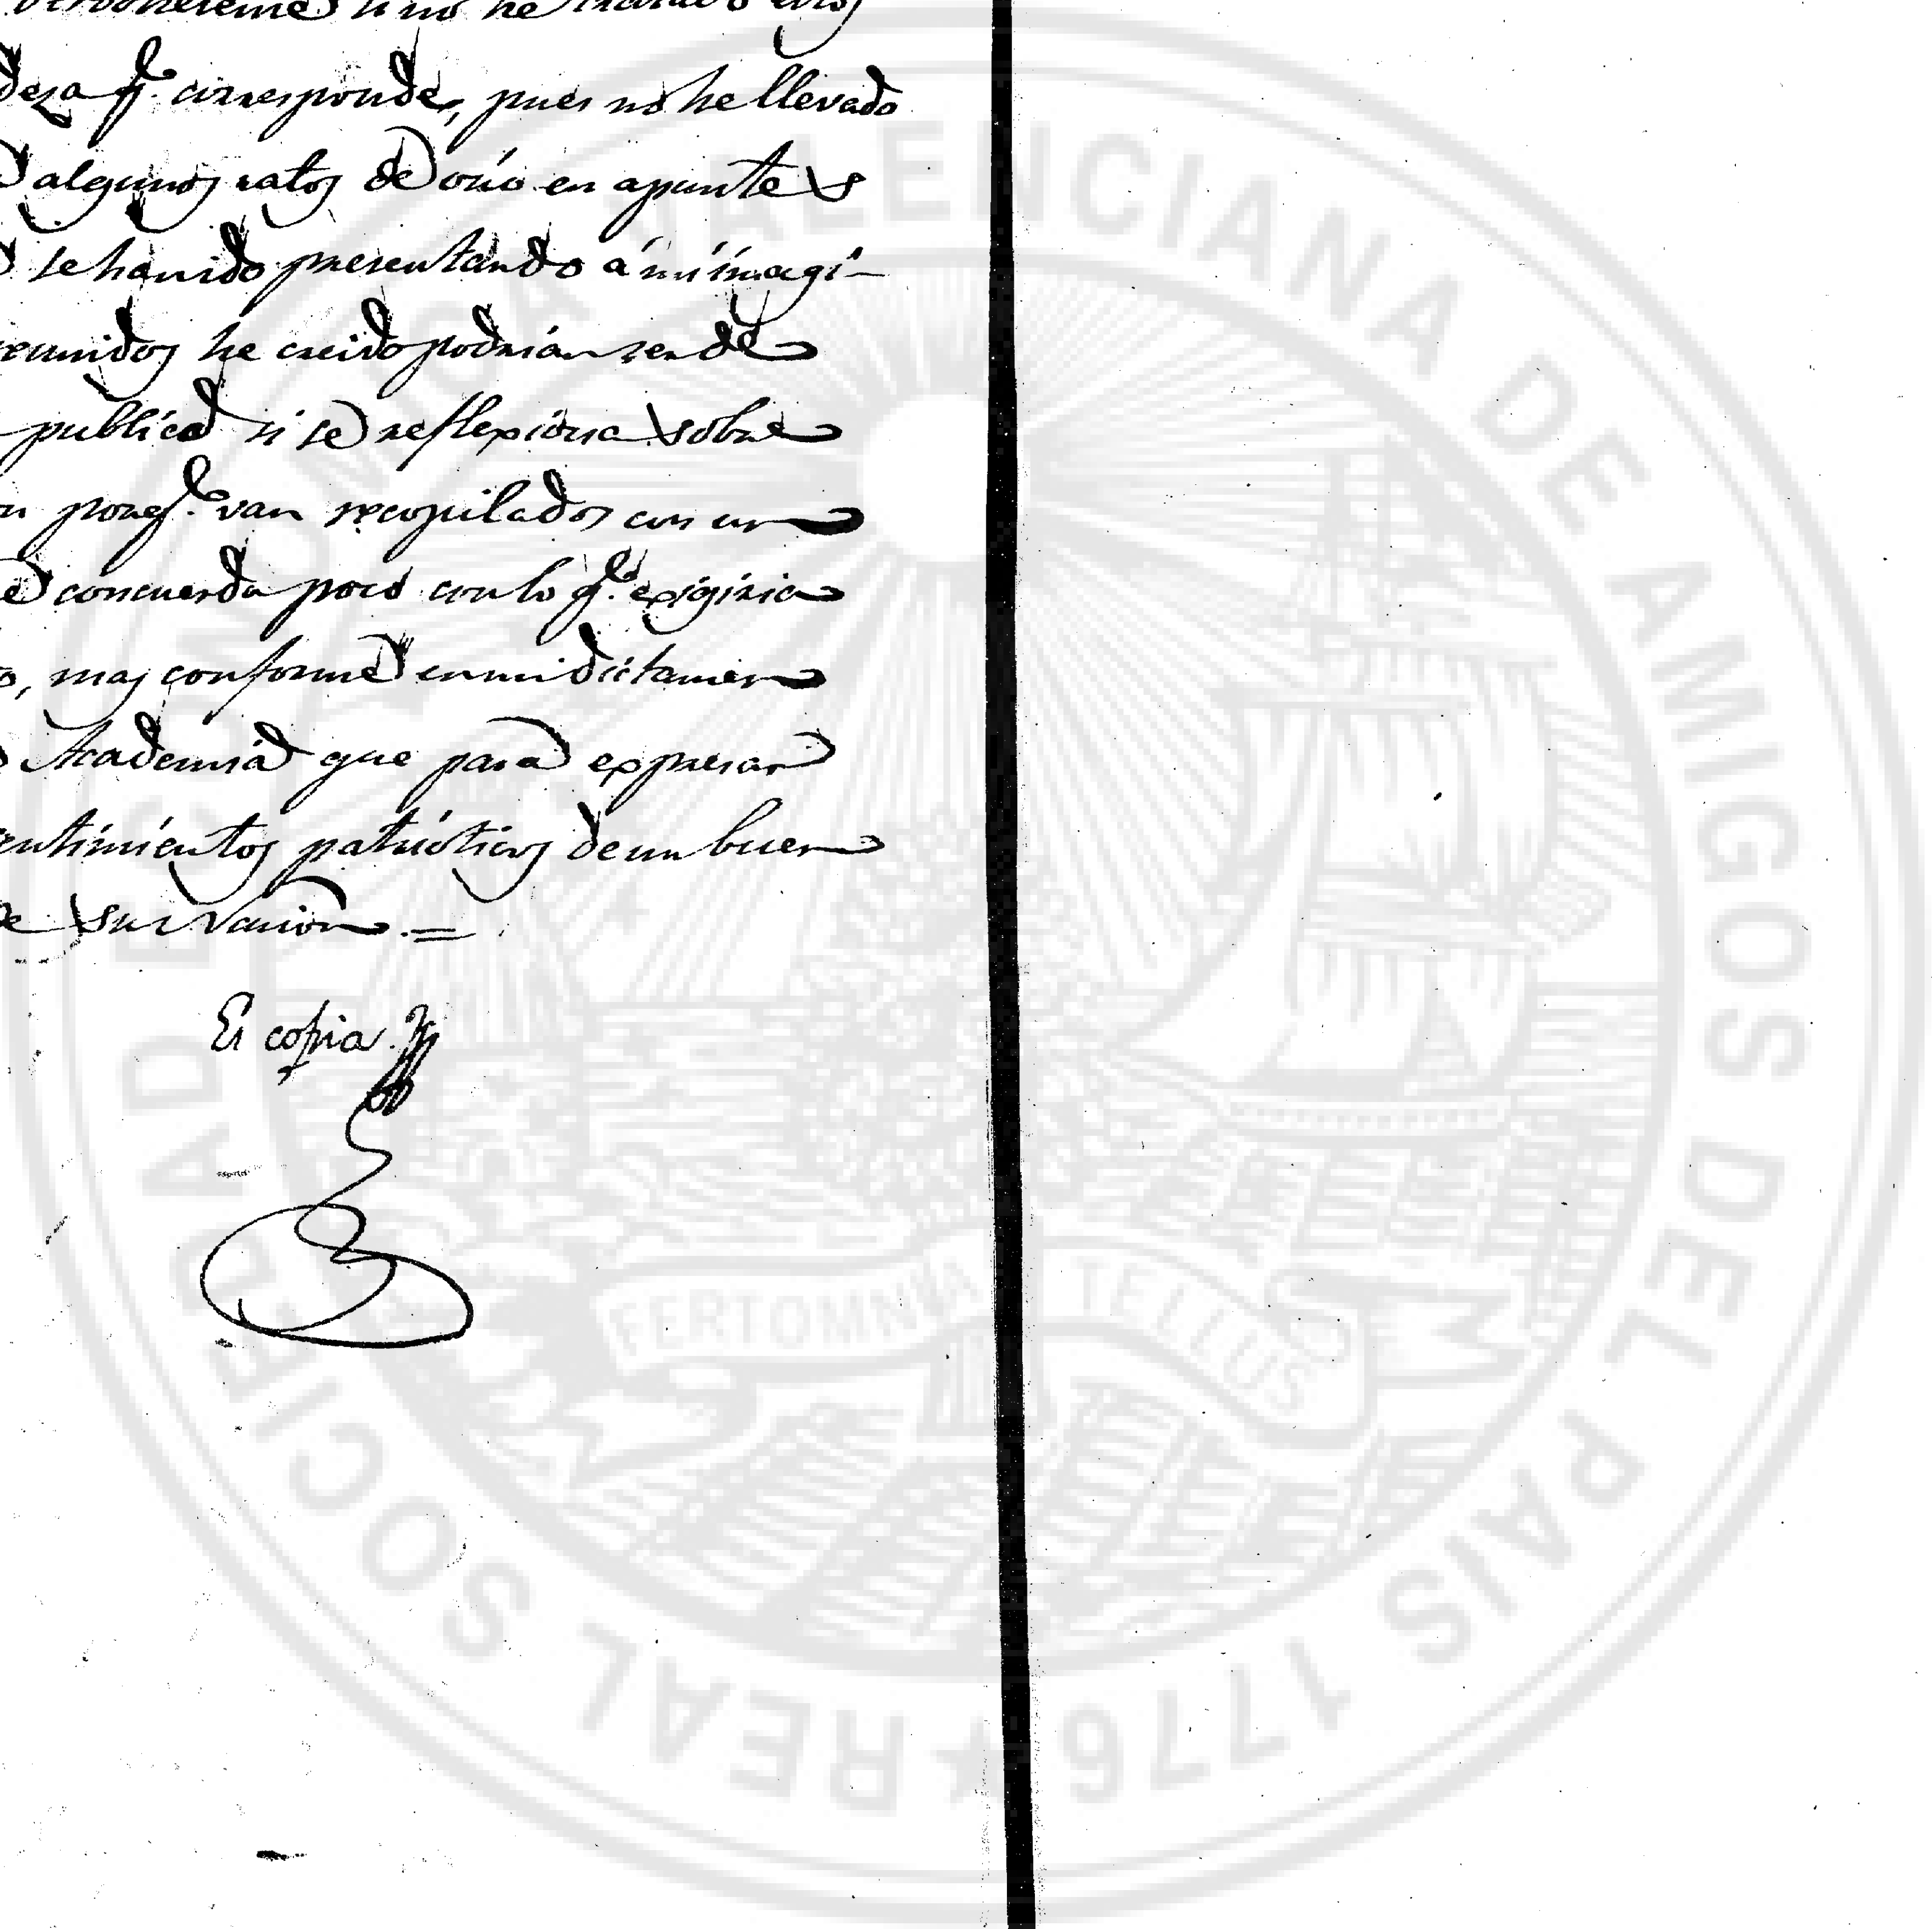 perdoneseme si no he tratado estos
deza q.e corresponde, pues no he llevado
algunos ratos de ocio en apuntes
se han ido presentando á mi imagi-
reunidos he creido podrian ser de
publica si se reflexiona sobre
porq.e van recopilados con un
concuerda poco con lo q.e exigiria
, mas conforme en mi dictamen
Academia que para expresar
entimientos patrioticos de un buen
de su Nacion. =
Es copia.
REAL SOCIEDAD ECONOMICA VALENCIANA DE AMIGOS DEL PAIS 1776
FERT OMNIA TELLUS